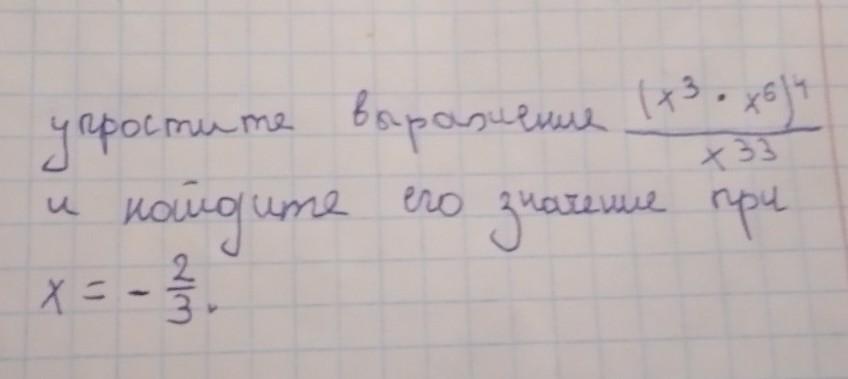 упростите выражение (x³ · x⁶)⁴ / x³³
и найдите его значение при
x = - 2/3.